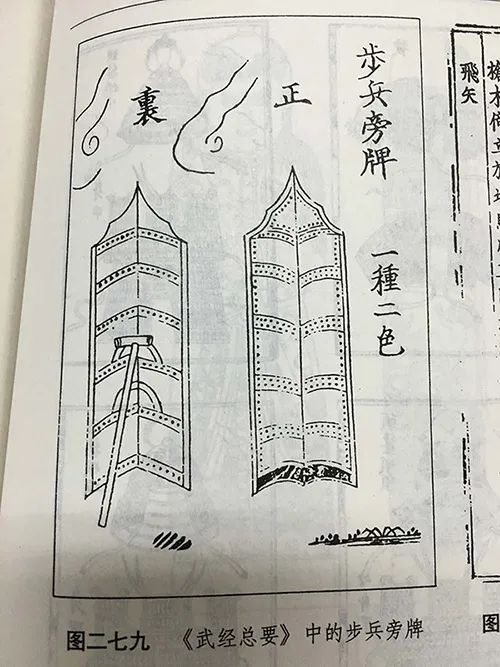 步兵旁牌
一種二色
正
裏
飛矢
图二七九 《武经总要》中的步兵旁牌
图